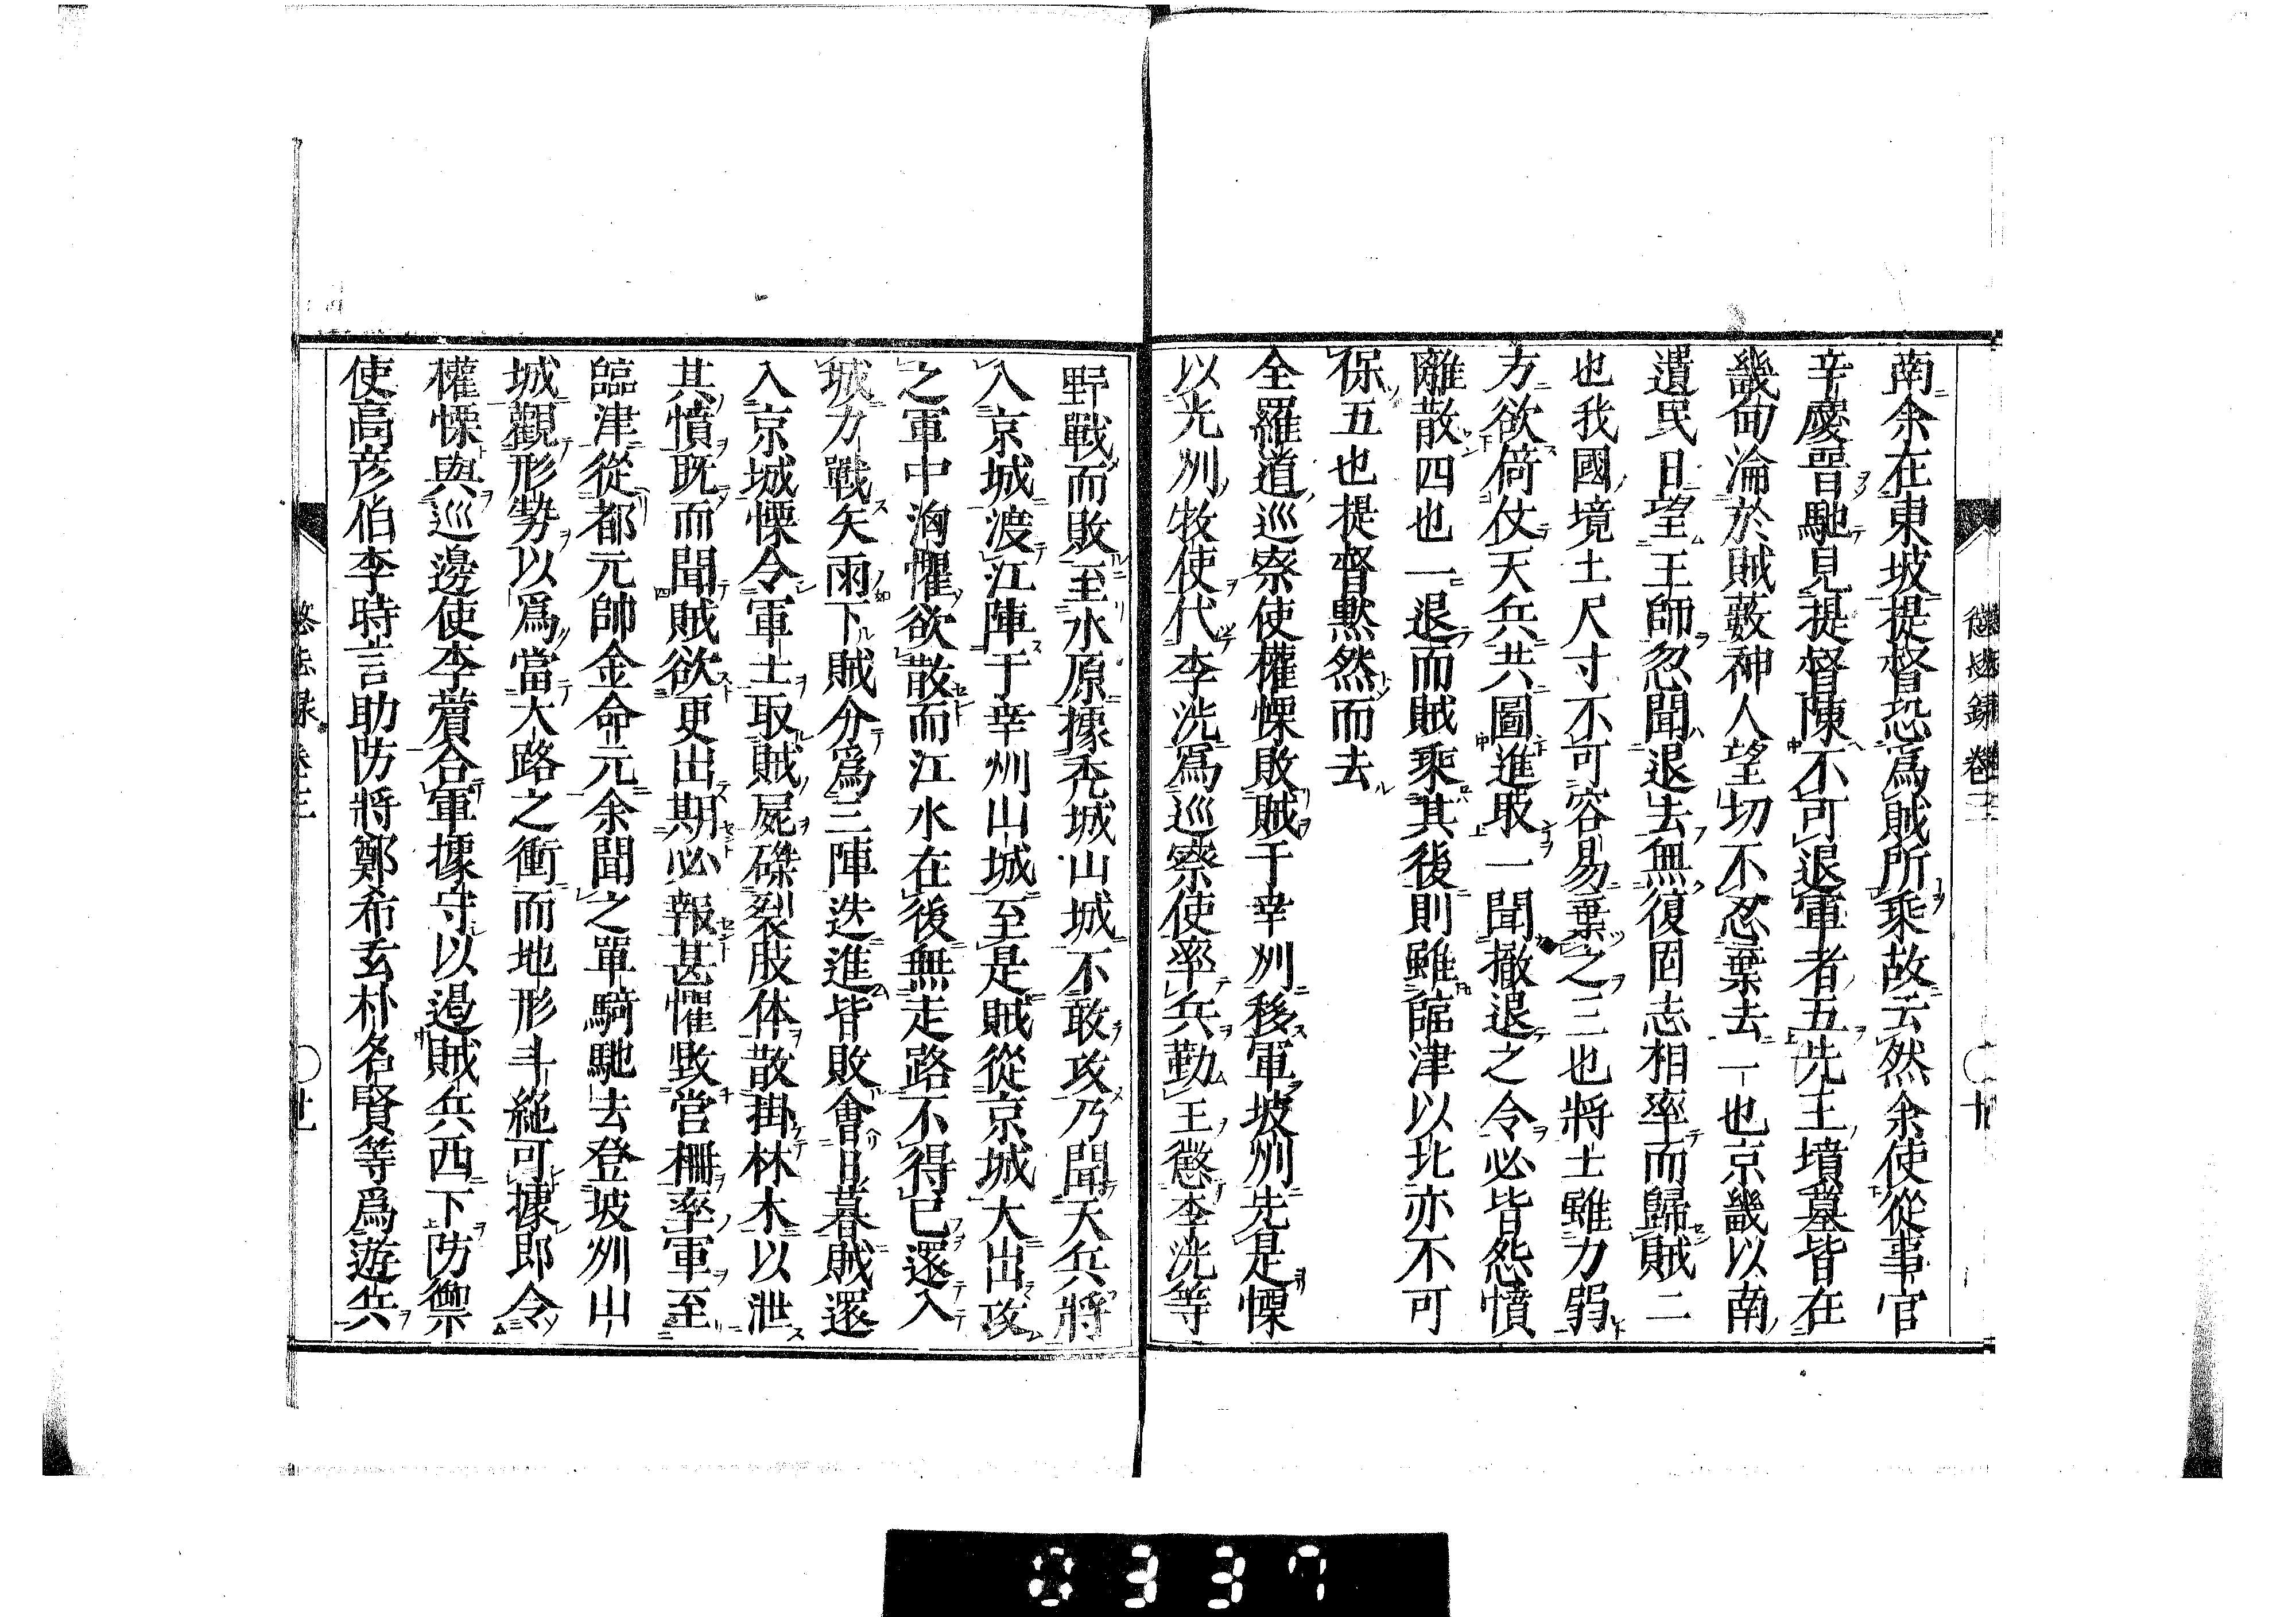 南余在東坡提督恐爲賊所乘故云然余使從事官
辛慶晉馳見提督陳不可退軍者五先王墳墓皆在
畿甸淪於賊藪神人望切不忍棄去一也京畿以南
遺民日望王師忽聞退去無復固志相率而歸賊二
也我國境土尺寸不可容易棄之三也將士雖力弱
方欲倚仗天兵共圖進取一聞撤退之令必皆怨憤
離散四也一退而賊乘其後則雖臨津以北亦不可
保五也提督默然而去
全羅道巡察使權慄敗賊于幸州移軍坡州先是慄
以光州牧使代李洸爲巡察使率兵勤王懲李洸等
野戰而敗至水原據禿城山城不敢攻乃聞天兵將
入京城渡江陣于幸州山城至是賊從京城大出攻
之軍中洶懼欲散而江水在後無走路不得已還入
城力戰矢雨下賊分爲三陣迭進皆敗會日暮賊還
入京城慄令軍士取賊屍磔裂肢体散掛林木以泄
其憤既而聞賊欲更出期必報甚懼毀営柵率軍至
臨津從都元帥金命元余聞之單騎馳去登坡州山
城觀形勢以爲當大路之衝而地形斗絶可據即令
權慄與巡邊使李薲合軍據守以遏賊兵西下防禦
使高彥伯李時言助防將鄭希玄朴名賢等爲遊兵
懲毖錄卷三
〇廿
〇廿一
0337